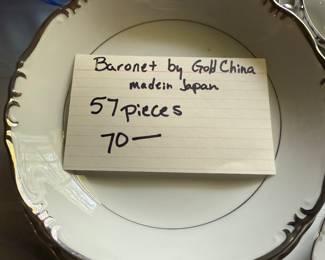 Baronet by Gold China
made in Japan
57 pieces
70—